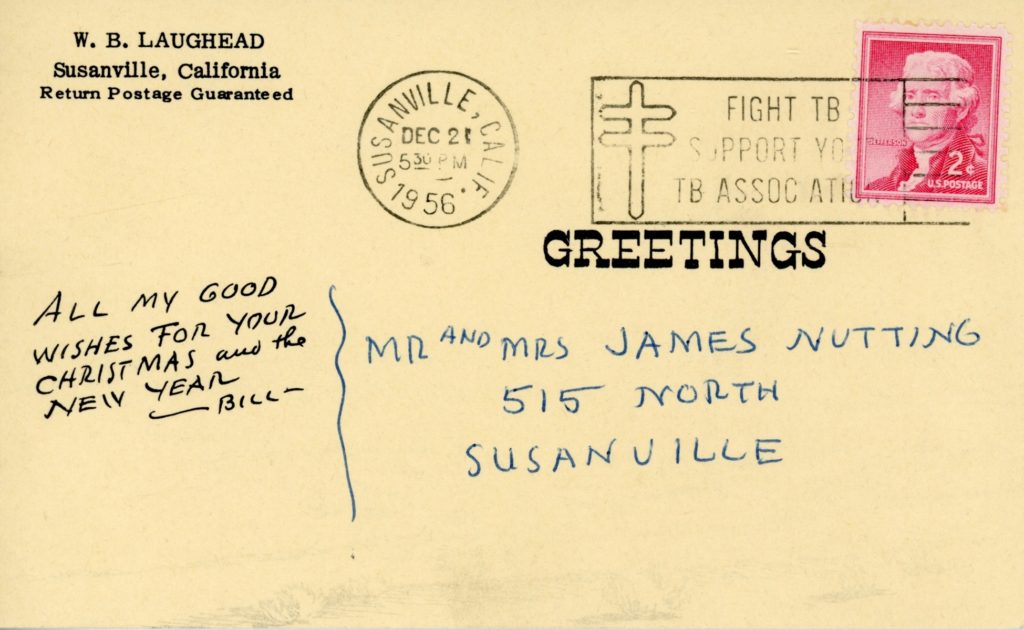 W. B. LAUGHEAD
Susanville, California
Return Postage Guaranteed
SUSANVILLE, CALIF.
DEC 21
5 30 PM
1956
FIGHT TB
SUPPORT YO
TB ASSOCIATION
JEFFERSON
2¢
U.S. POSTAGE
GREETINGS
ALL MY GOOD
WISHES FOR YOUR
CHRISTMAS and the
NEW YEAR
—BILL—
MR AND MRS JAMES NUTTING
515 NORTH
SUSANVILLE